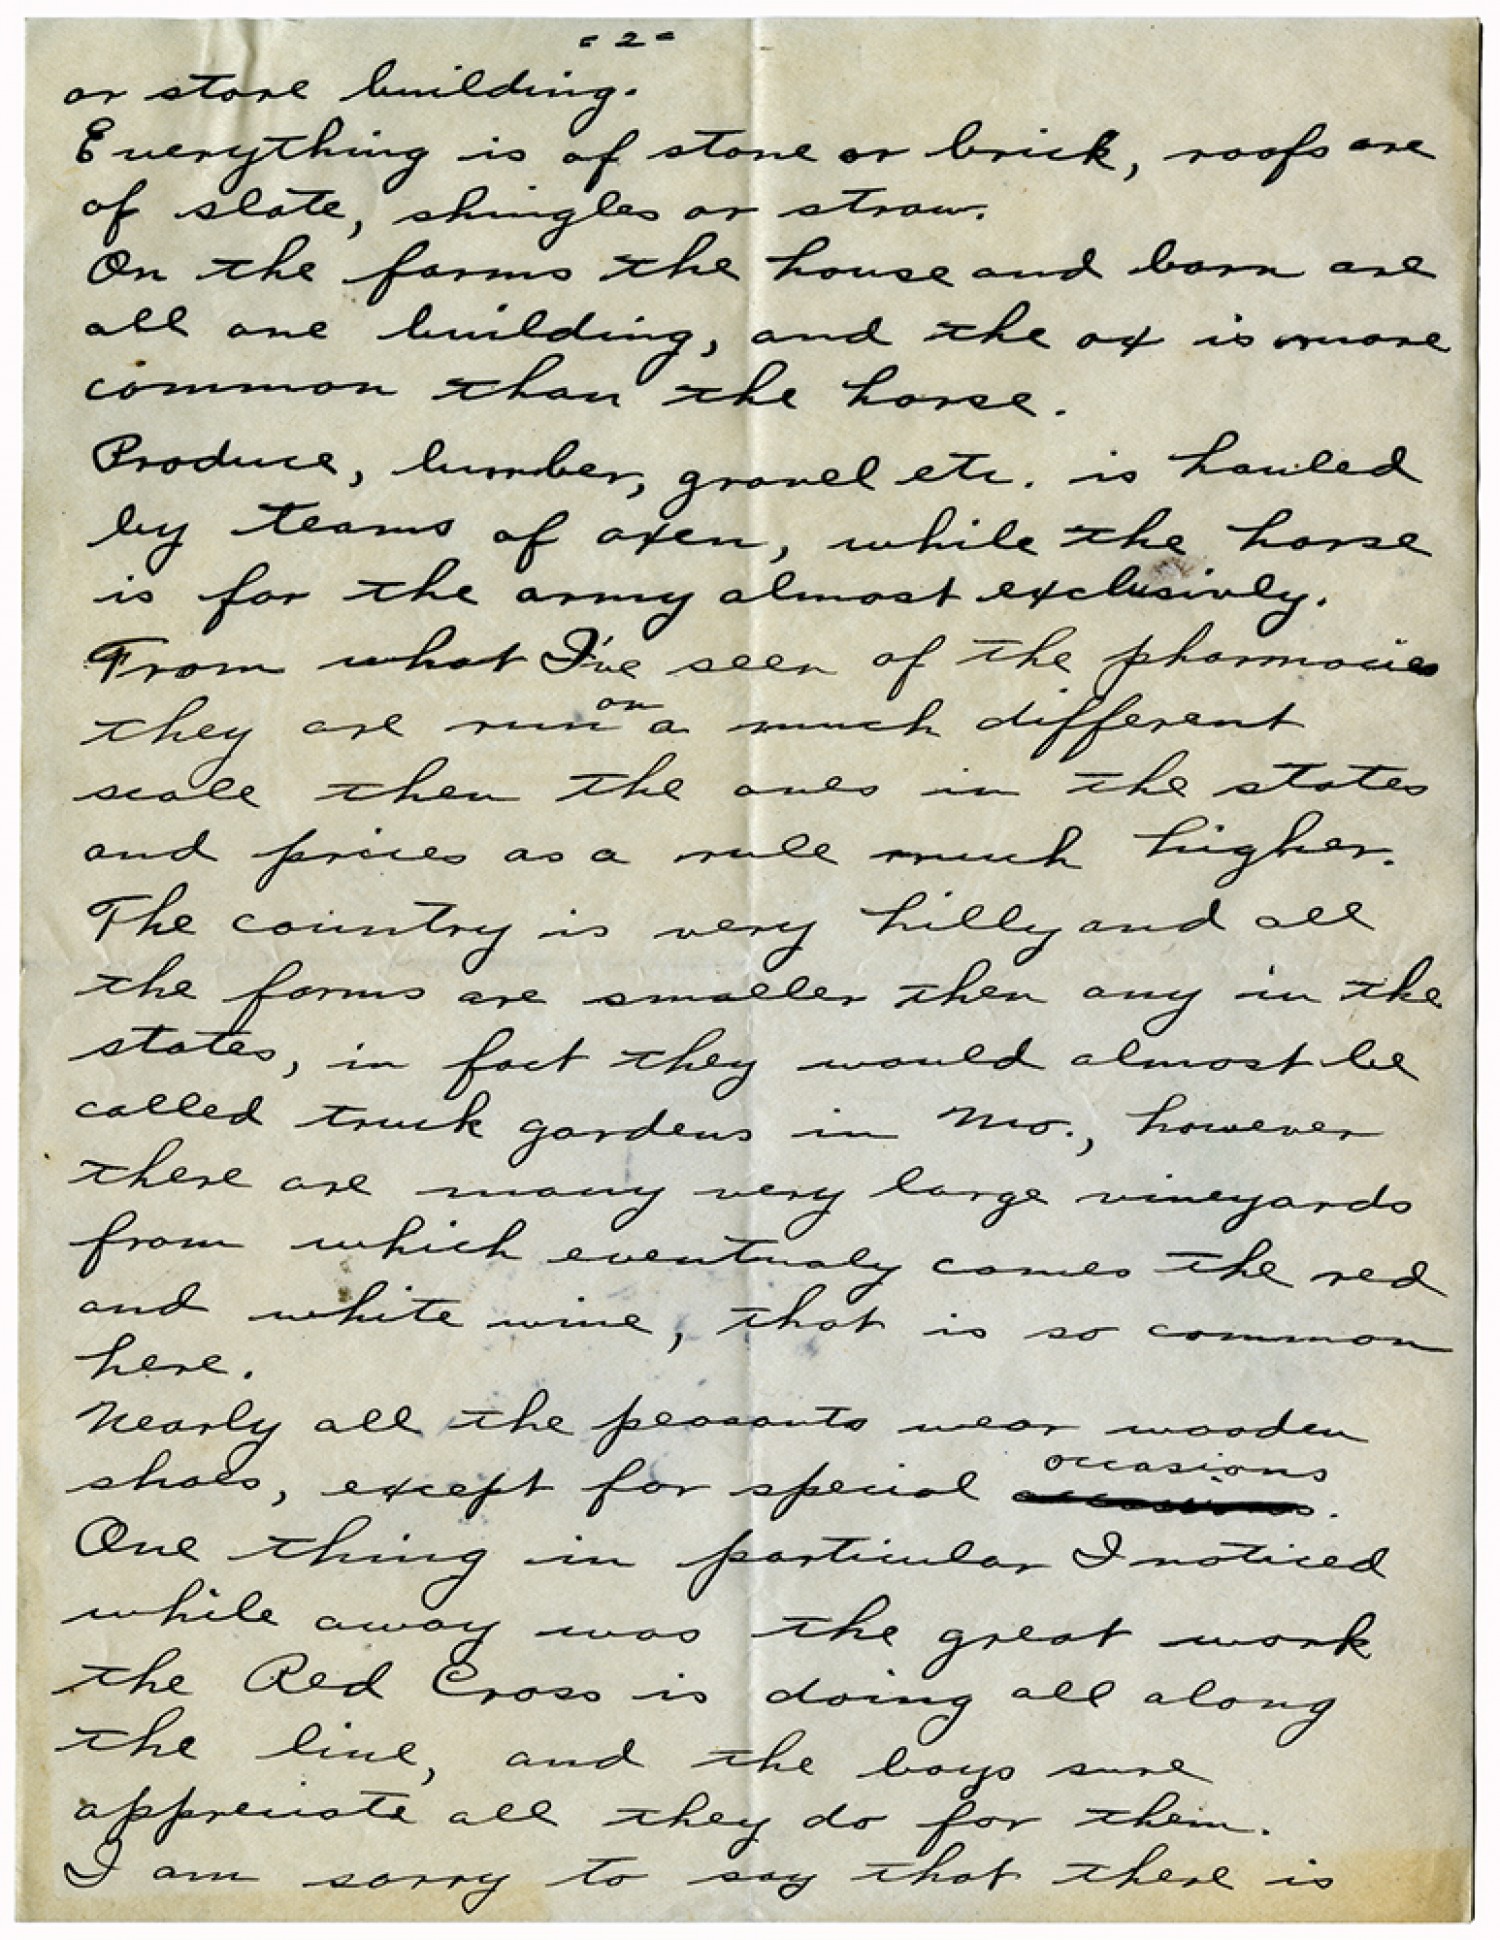 -2-
or store building.
Everything is of stone or brick, roofs are
of slate, shingles or straw.
On the farms the house and barn are
all one building, and the ox is more
common than the horse.
Produce, lumber, gravel etc. is hauled
by teams of oxen, while the horse
is for the army almost exclusivly.
From what I've seen of the pharmacies
they are run on a much different
scale then the ones in the states
and prices as a rule much higher.
The country is very hilly and all
the farms are smaller then any in the
states, in fact they would almost be
called truck gardens in Mo., however
there are many very large vineyards
from which eventualy comes the red
and white wine, that is so common
here.
Nearly all the peasants wear wooden
shoes, except for special occasions.
One thing in particular I noticed
while away was the great work
the Red Cross is doing all along
the line, and the boys sure
appreciate all they do for them.
I am sorry to say that there is